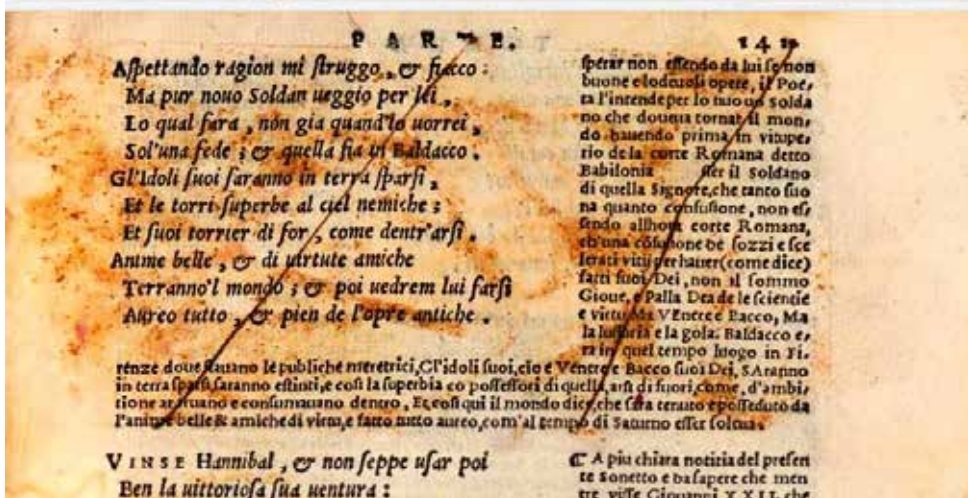 PARTE.
Aſpettando ragion mi ſtruggo, & fiacco:
Ma pur nouo Soldan ueggio per lei,
Lo qual fara, non gia quand'io uorrei,
Sol'una fede; & quella fia in Baldacco.
Gl'Idoli ſuoi ſaranno in terra ſparſi,
Et le torri ſuperbe al ciel nemiche;
Et ſuoi torrier di for, come dentr'arſi.
Anime belle, & di uirtute amiche
Terranno'l mondo; & poi uedrem lui farſi
Aureo tutto, & pien de l'opre antiche.
ſperar non eſſendo da lui ſe non
buone e lodeuoli opere, il Poe-
ta l'intende per lo nuouo Solda
no che doueua tornar il mon-
do hauendo prima in vitupe-
rio de la corte Romana detto
Babilonia eſſer il Soldano
di quella Signore, che tanto ſuo
na quanto confuſione, non eſ-
ſendo allhora corte Romana,
ch'una cōfuſione de ſozzi e ſce
lerati vitij per hauer (come dice)
fatti ſuoi Dei, non il ſommo
Gioue, e Palla Dea de le ſcientie
e virtu, Ma VEnere e Bacco, Ma
la luſſuria e la gola. Baldacco e-
ra in quel tempo luogo in Fi-
renze doue ſtauano le publiche meretrici, Gl'idoli ſuoi, cio e Venere e Bacco ſuoi Dei, SAranno
in terra ſparſi, ſaranno eſtinti, e coſi la ſuperbia co poſſeſſori di quella, arſi di fuori, come, d'ambi-
tione ardeuano e conſumauano dentro, Et coſi qui il mondo dice, che ſara tenuto e poſſeduto da
l'anime belle & amiche di virtu, e fatto tutto aureo, com'al tempo di Saturno eſſer ſoleua.
VINSE Hannibal, & non ſeppe uſar poi
Ben la uittorioſa ſua uentura:
A piu chiara notitia del preſen
te Sonetto e da ſapere che men
tre viſſe Giouanni XXII. che